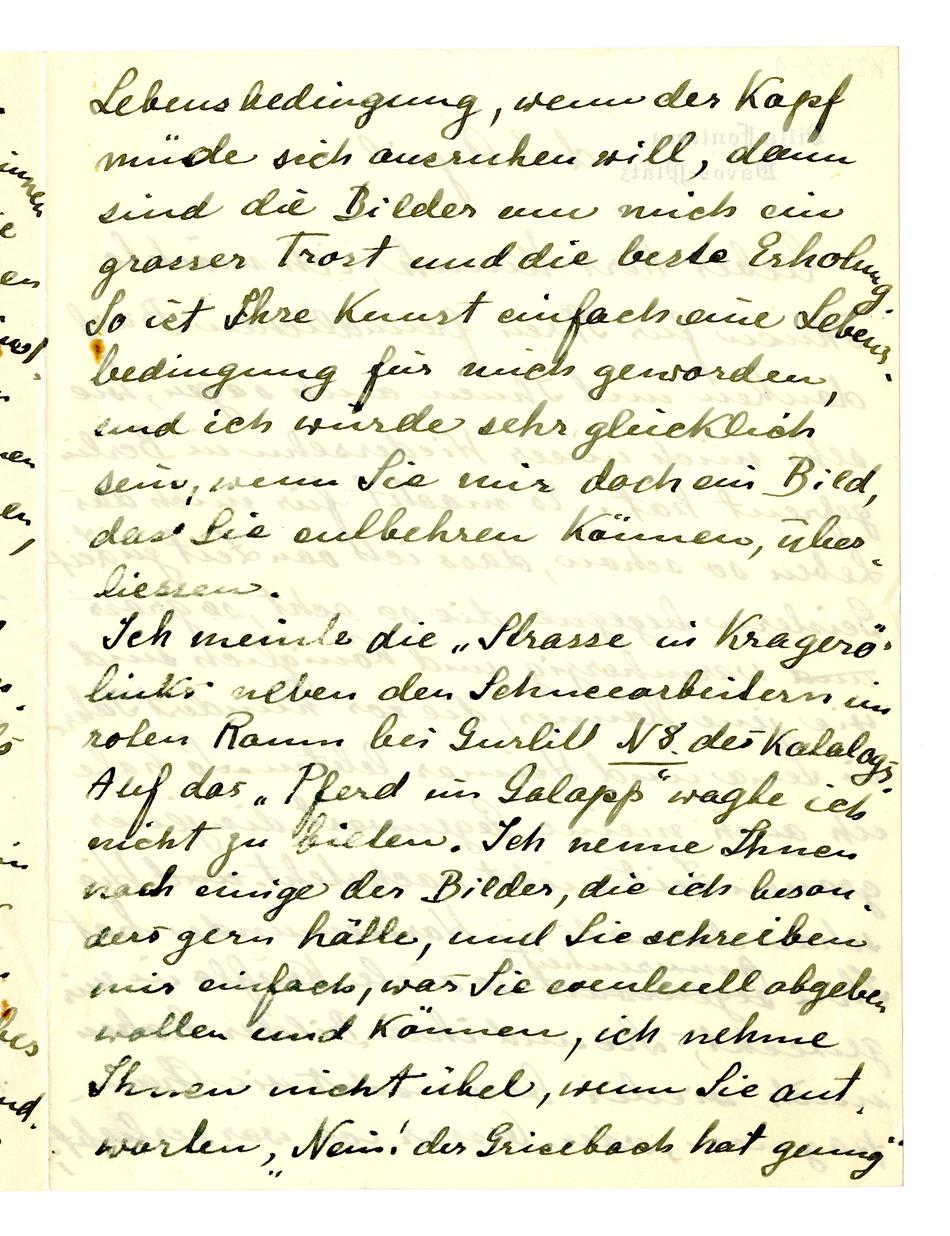 Lebensbedingung, wenn der Kopf
müde sich ausruhen will, dann
sind die Bilder um mich ein
grosser Trost und die beste Erholung
So ist Ihre Kunst einfach eine Lebens-
bedingung für mich geworden,
und ich würde sehr glücklich
sein, wenn Sie mir doch ein Bild,
das Sie entbehren können, über-
liessen.
Ich meinte die „Strasse in Kragerö"
links neben den Schneearbeitern im
roten Raum bei Gurlitt N8. des Katalogs.
Auf das „Pferd im Galopp" wagte ich
nicht zu bieten. Ich nenne Ihnen
noch einige der Bilder, die ich beson-
ders gern hätte, und Sie schreiben
mir einfach, was Sie eventuell abgeben
wollen und können, ich nehme
Ihnen nicht übel, wenn Sie ant-
worten, „Nein! der Grisebach hat genug"